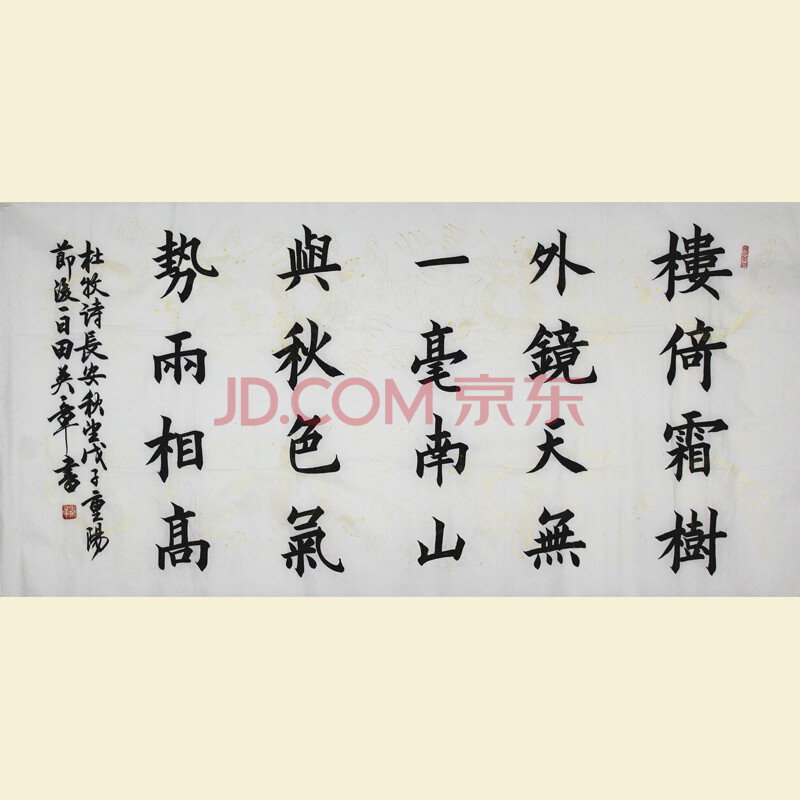 樓倚霜樹
外鏡天無
一毫南山
與秋色氣
勢兩相髙
杜牧诗長安秋望戊子重陽
節後一日田英章書
JD.COM 京东